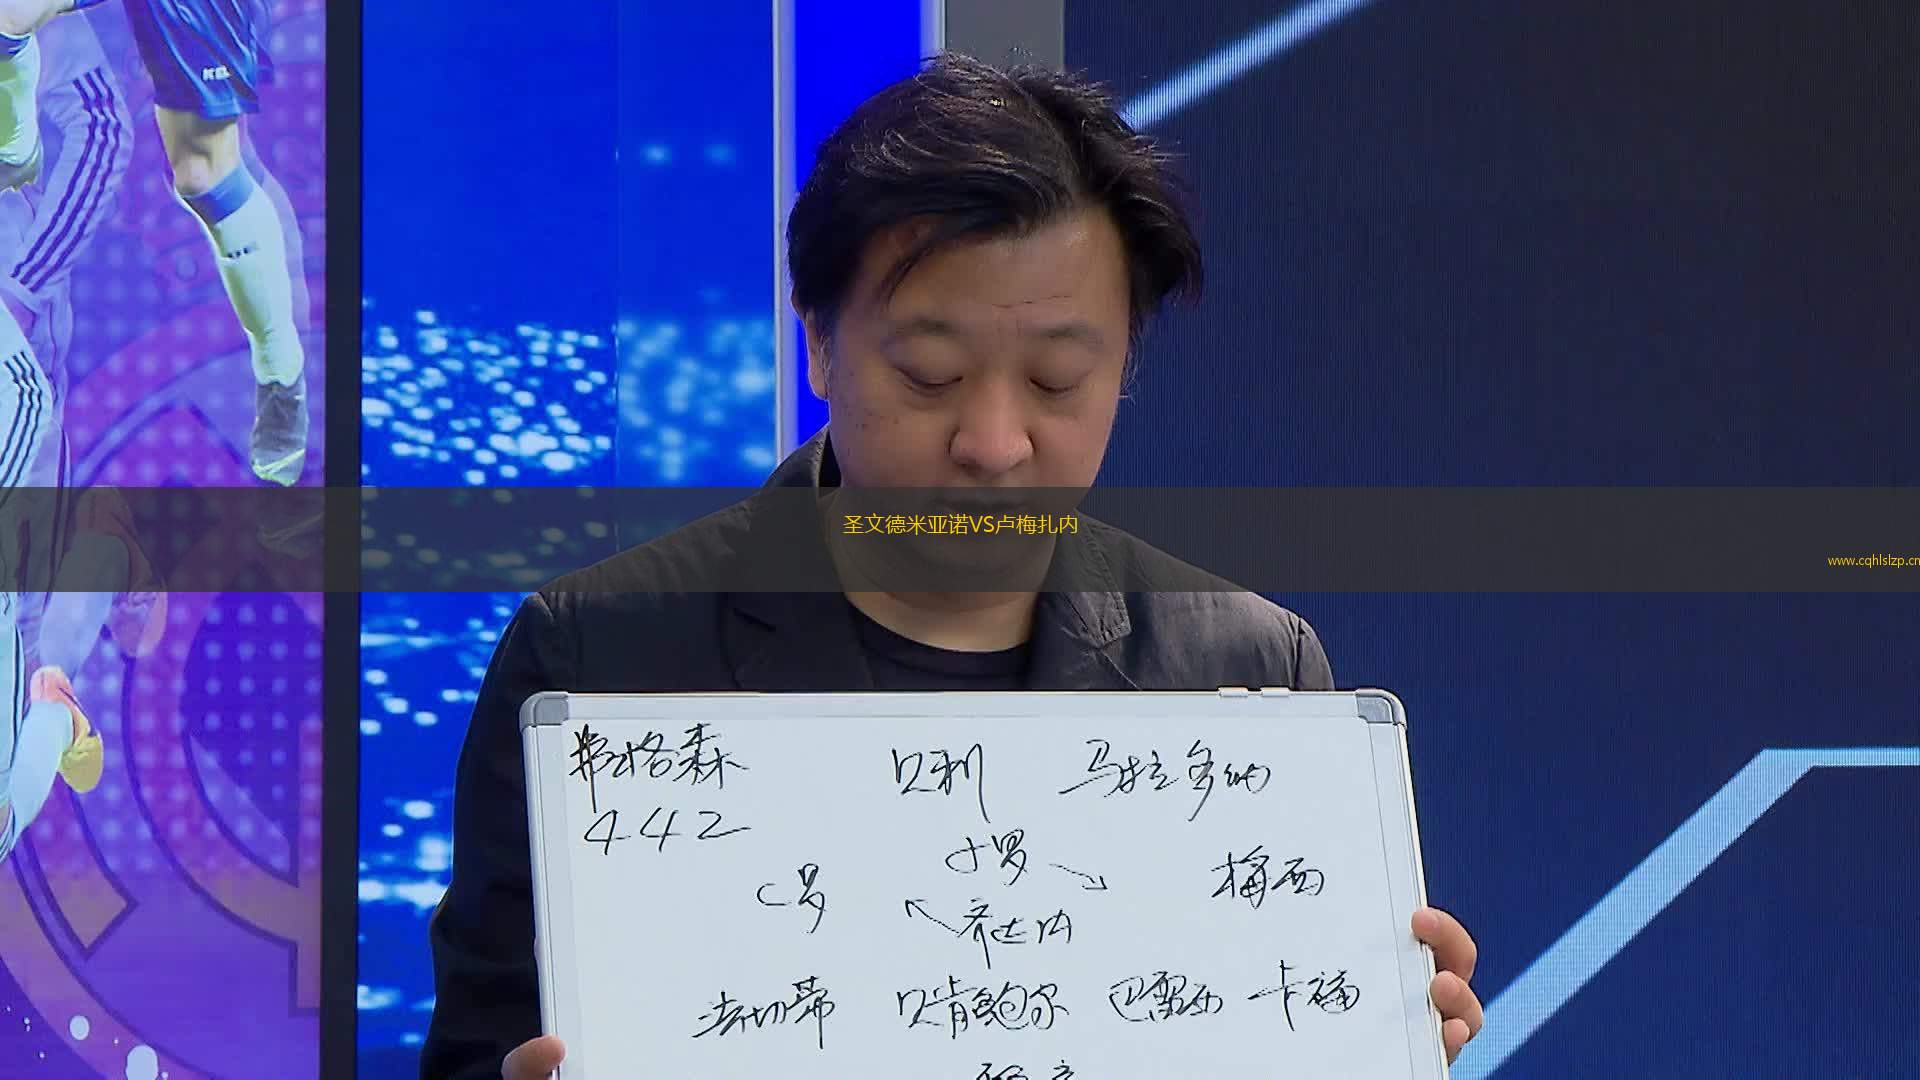 圣文德米亚诺VS卢梅扎内
www.cqhlslzp.cn
弗格森 贝利 马拉多纳
442
小罗
C罗 梅西
齐达内
法切蒂 贝肯鲍尔 巴雷西 卡福